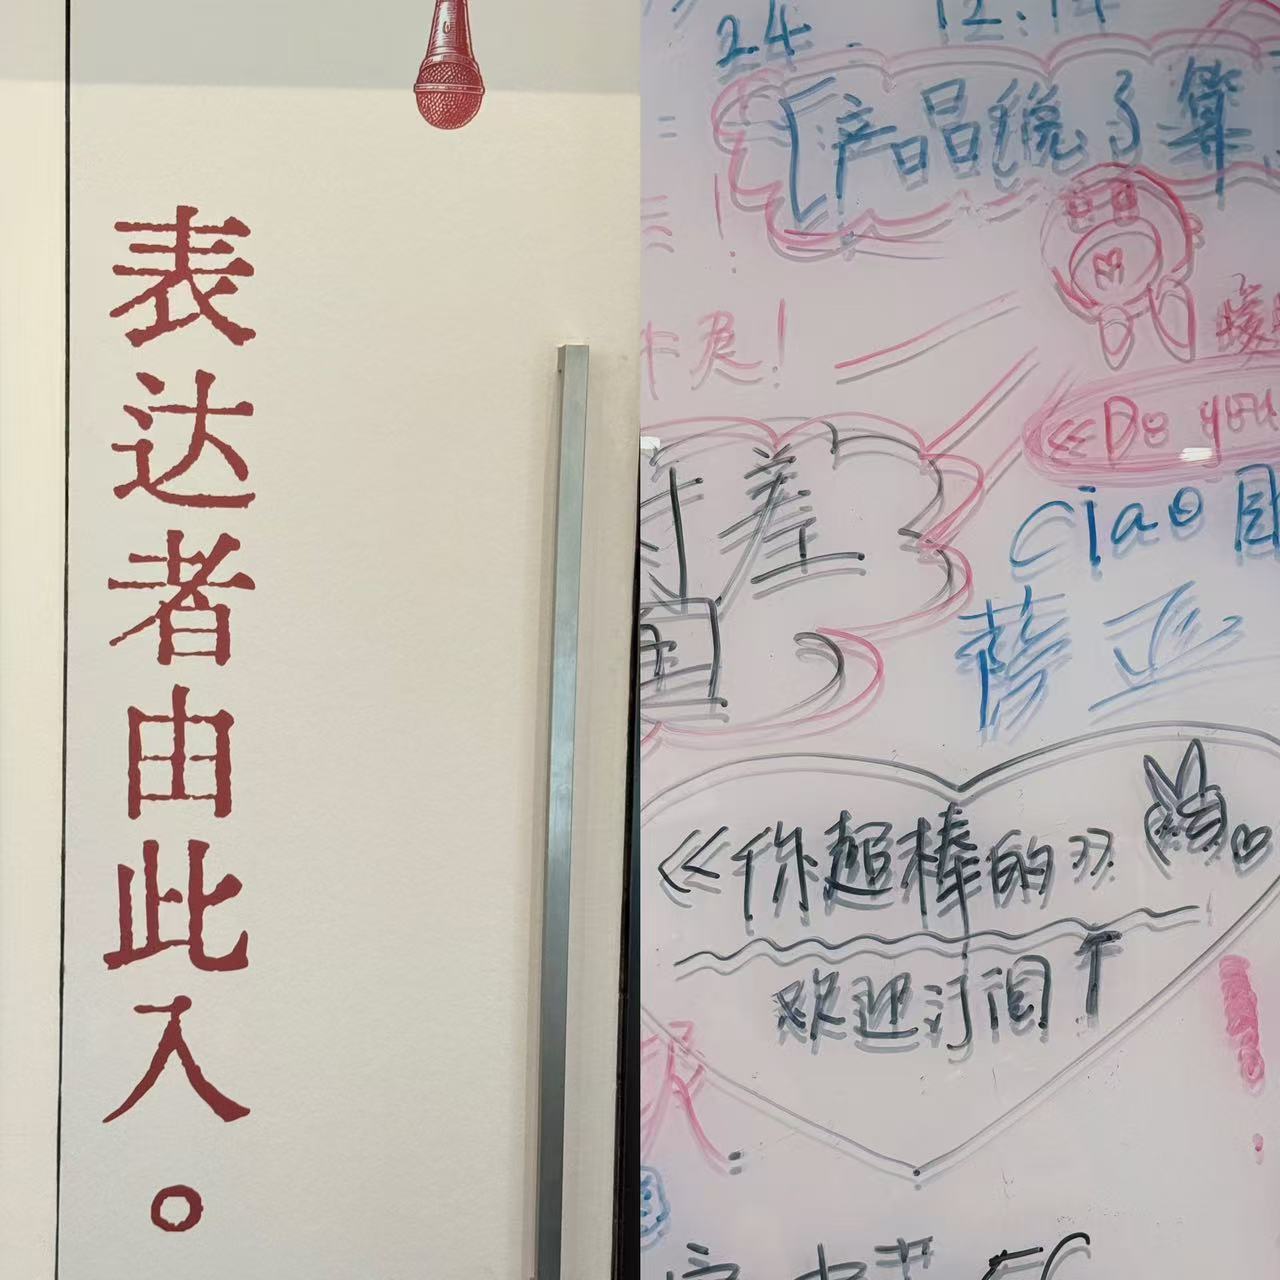 表达者由此入。
24 12.14
「产品说了算
牛尼!
《Do you
时差
Ciao
蒡亚
《你超棒的》
欢迎订阅